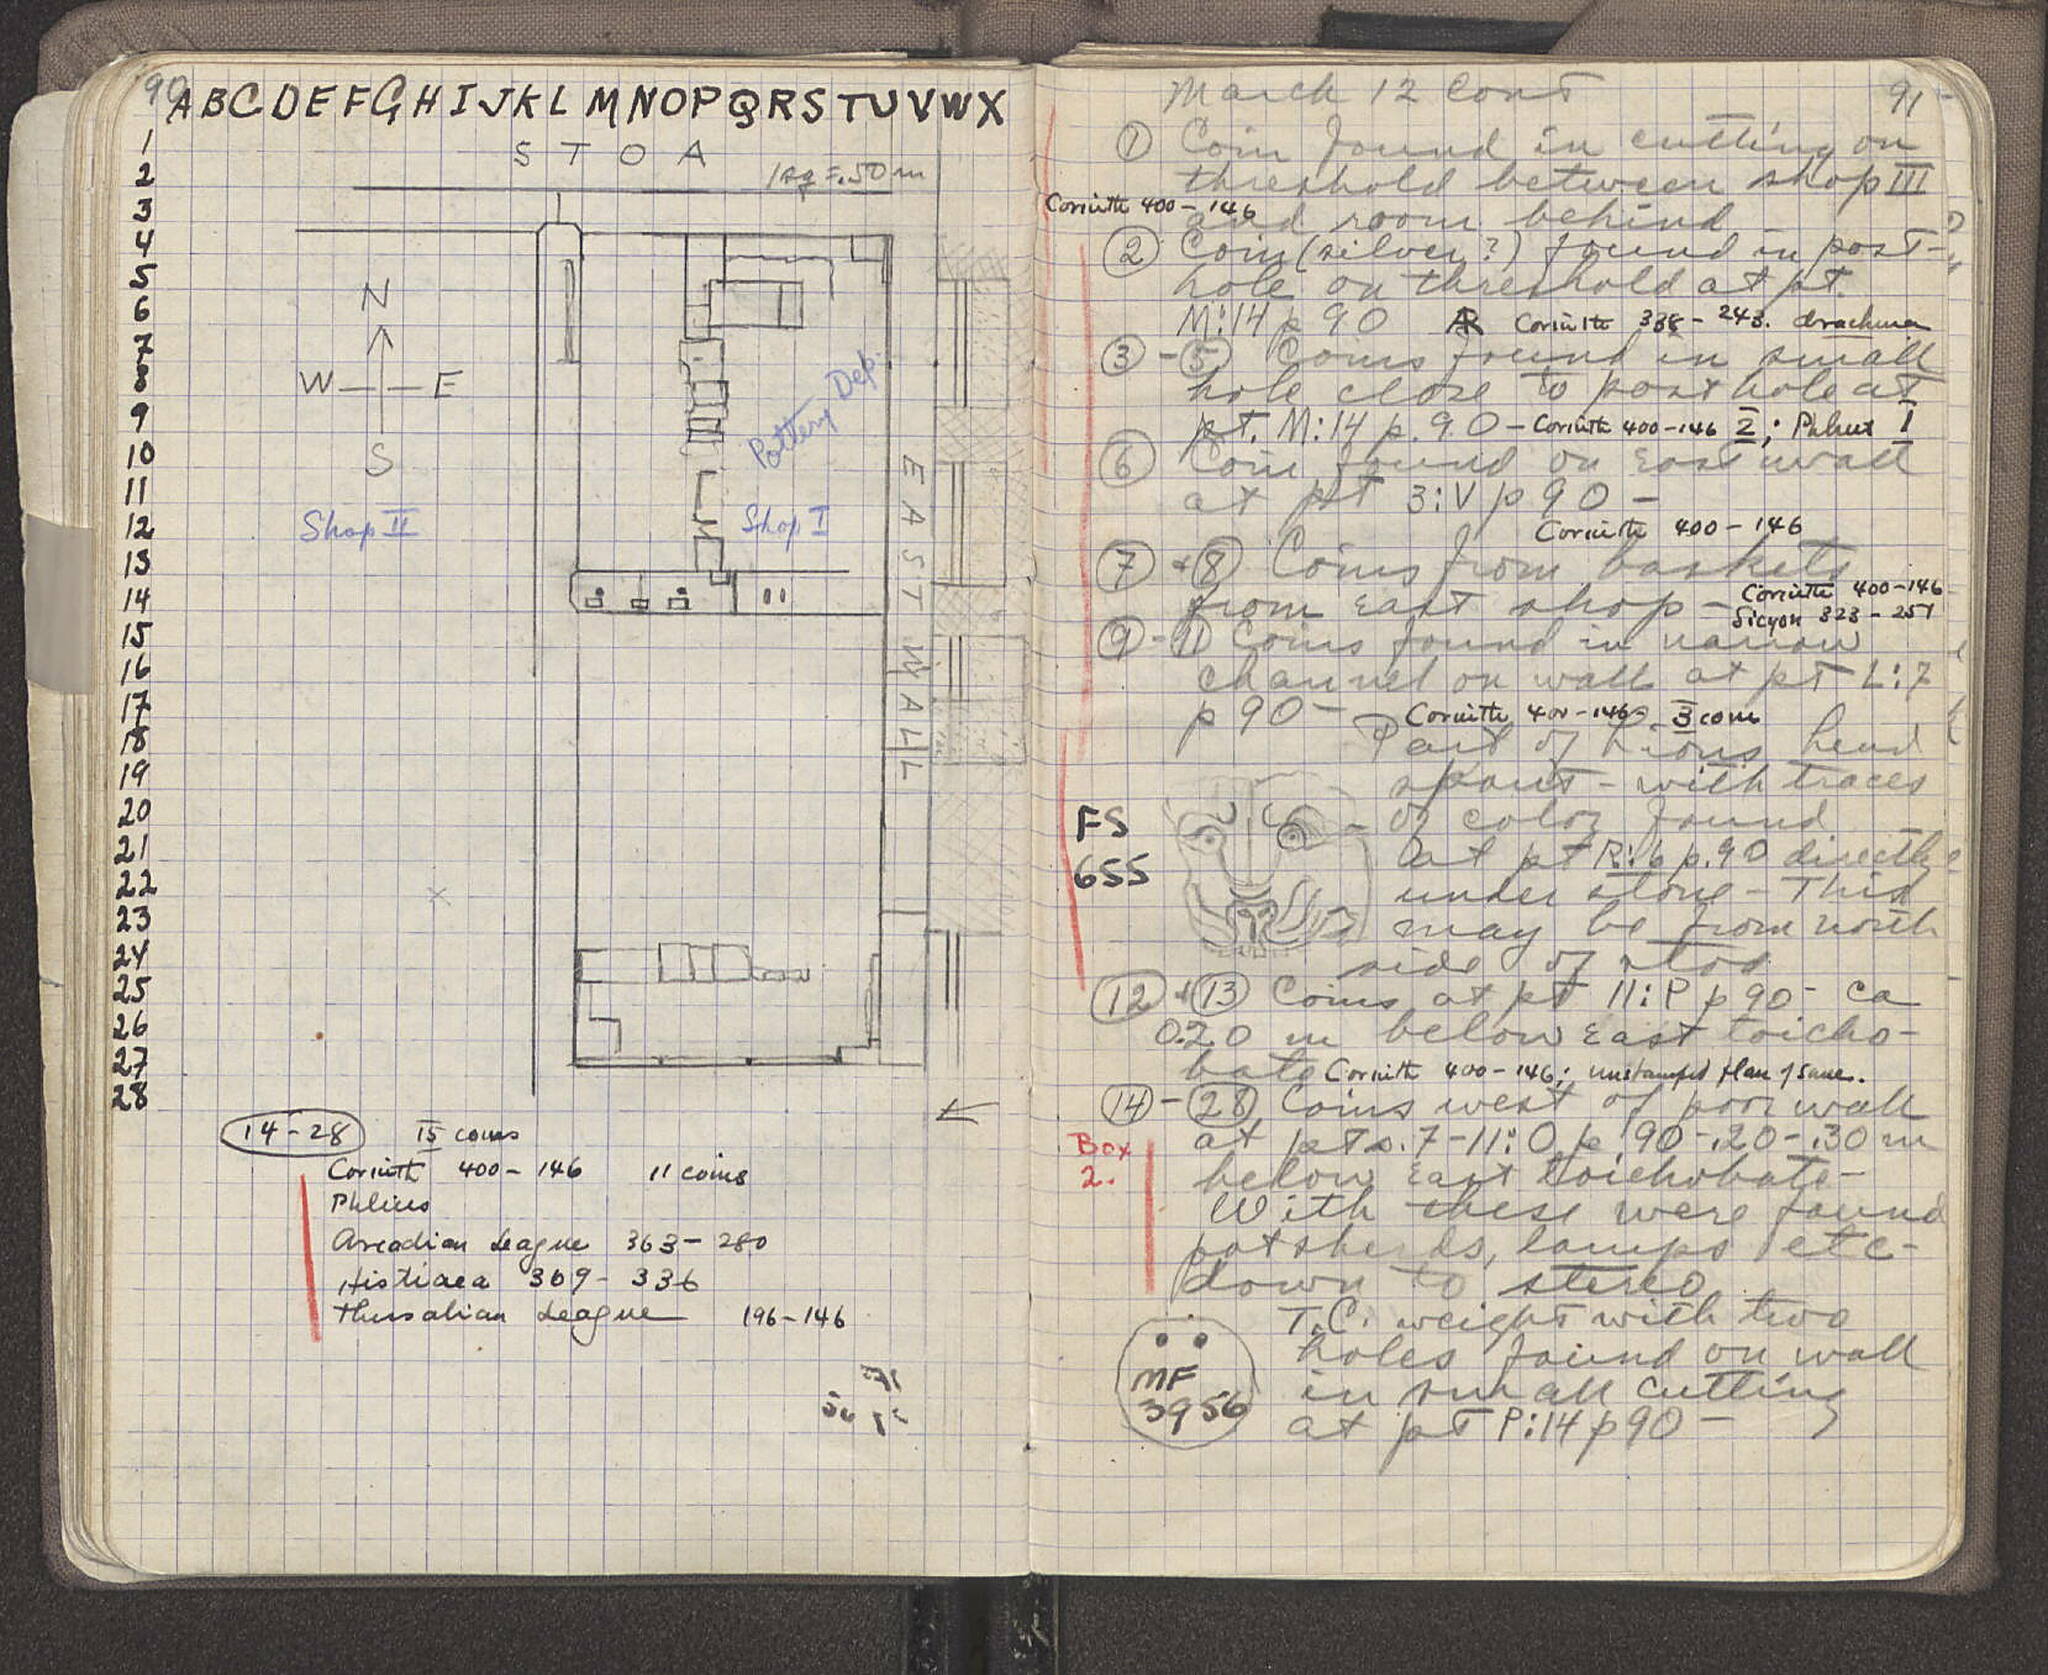 90
A B C D E F G H I J K L M N O P Q R S T U V W X
1
2
3
4
5
6
7
8
9
10
11
12
13
14
15
16
17
18
19
20
21
22
23
24
25
26
27
28
S T O A
1 sq = .50 m
N
W E
S
Pottery Dep.
Shop II
Shop I
EAST WALL
14-28 15 coins
Corinth 400-146 11 coins
Phlius
Arcadian League 363-280
Histiaea 369-336
Thessalian League 196-146
March 12 Cont
91
① Coin found in cutting on
threshold between shop III
Corinth 400-146
and room behind
② Coin (silver?) found in post-
hole on threshold at pt.
M:14 p 90 AR Corinth 338-243. drachma
③-⑤ Coins found in small
hole close to post hole at
pt. M:14 p. 90 - Corinth 400-146 2; Phlius 1
⑥ Coin found on East wall
at pt 3:V p 90 -
Corinth 400-146
⑦ + ⑧ Coins from baskets
from East shop - Corinth 400-146
Sicyon 323-251
⑨-⑪ Coins found in narrow
channel on wall at pt L:7
p 90 - Corinth 400-146 3 coins
Part of Lions head
spout - with traces
of color found
FS
655
at pt R:6 p. 90 directly
under stone - This
may be from north
side of stoa
⑫ + ⑬ Coins at pt 11:P p 90 - ca
0.20 m below East toicho-
bate Corinth 400-146; unstamped flan of same.
⑭-㉘ Coins west of poor wall
Box
2.
at pts. 7-11:O p. 90 - .20-.30 m
below East toichobate -
With these were found
potsherds, lamps etc -
down to stereo
T.C. weight with two
holes found on wall
in small cutting
at pt P:14 p 90 -
MF
3956